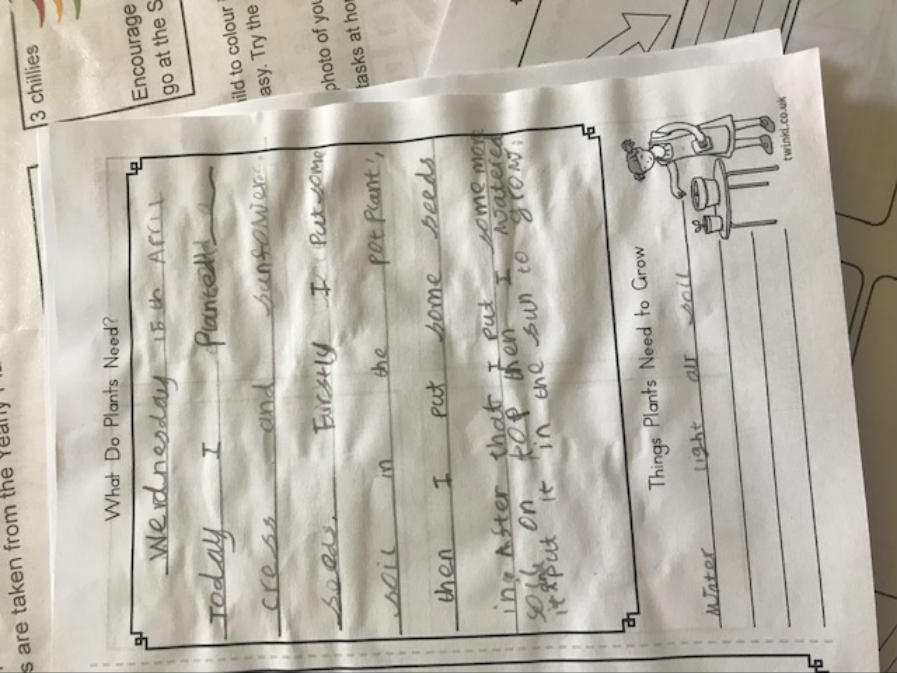 3 chillies
Encourage
go at the S
ild to colour
asy. Try the
photo of you
tasks at ho
s are taken from the Yearly
What Do Plants Need?
Werdnesday 15th April
Today I Planted
cress and sunfower
seeds. Firstly I Put some
soil in the pot plant,
then I put some seeds
in. After that I put some more
soil on top then I watered
it put it in the sun to grow.
Things Plants Need to Grow
water light air soil
twinkl.co.uk